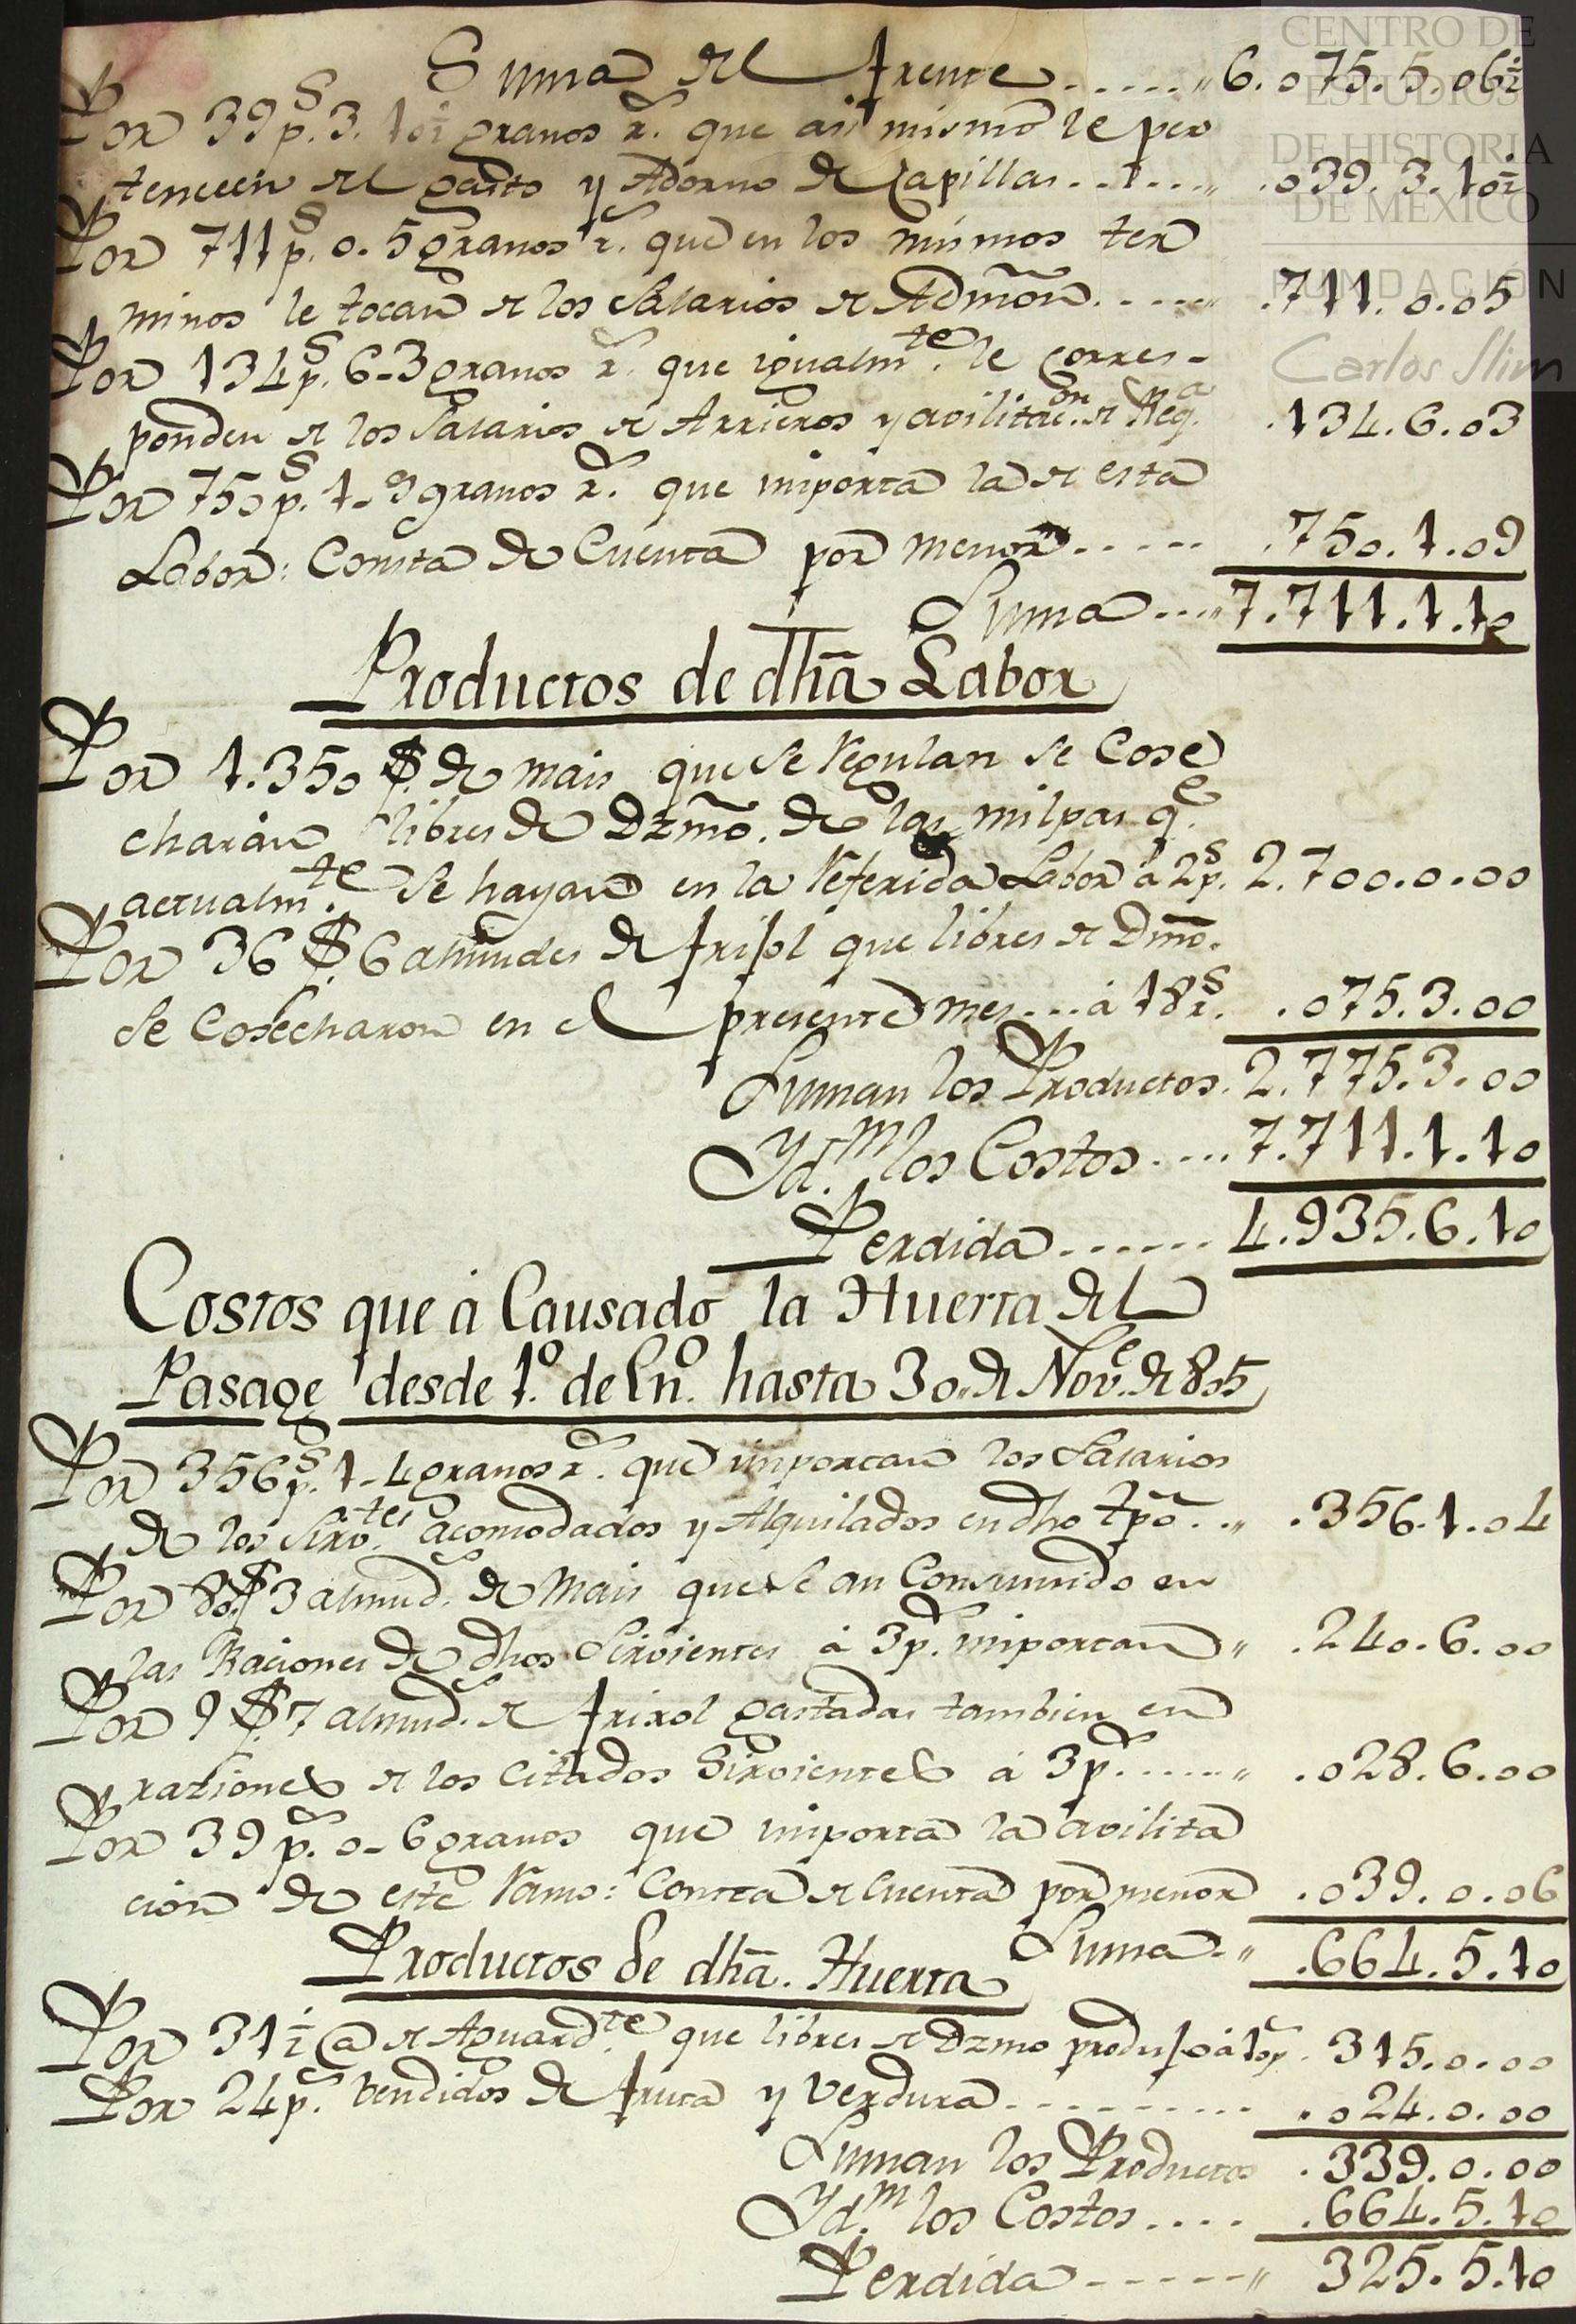 CENTRO DE
ESTUDIOS
DE HISTORIA
DE MÉXICO
FUNDACIÓN
Carlos Slim
Suma del frente......,, 6.075.5.06½
Por 39p.s 3. 10½ granos r.s que asi mismo le per
tenecen del gasto y Adorno de Capillas......,, .039.3.10½
Por 711p.s 0.5 granos r.s que en los mismos ter
minos le tocan de los Salarios de Admõn.....,, .711.0.05
Por 134p.s 6-3 granos r.s que igualm.te le corres-
ponden de los Salarios de Arrieros y avilitac.on de Req.a .134.6.03
Por 750p.s 1-9 granos r.s que importa la de esta
Labor: Consta de Cuenta por menor..... .750.1.09
Suma....,, 7.711.1.10
Productos de dhã Labor
Por 1.350 $ de mais que se regulan se Cose
charàn libres de Dzmõ. de las milpas q.e
actualm.te se hayan en la referida Labor â 2p.s 2.700.0.00
Por 36 $ 6 almudes de frisol que libres de Dmõ.
se Cosecharon en el presente mes... â 18r.s .075.3.00
Suman los Productos. 2.775.3.00
Yd.m los Costos.... 7.711.1.10
Perdida...... 4.935.6.10
Costos que â Causado la Huerta del
Pasage desde 1.º de En.º hasta 30,, de Nov.e de 805
Por 356p.s 1-4 granos r.s que importan los Salarios
de los Sirv.tes acomodados y Alquilados en dho tpõ..,, .356.1.04
Por 80 $ 3 almud.s de Mais que se an Consumido en
las Raciones de dhos Sirvientes â 3p.s importan ,, .240.6.00
Por 9 $ 7 almud.s de frixol gastadas tambien en
raziones de los citados Sirvientes â 3p.s......,, .028.6.00
Por 39 p.s 0-6 granos que importa la avilita
cion de este ramo: Consta de Cuenta por menor .039.0.06
Suma..,, .664.5.10
Productos de dhã. Huerta
Por 31½ @ de Aguard.te que libres de Dzmo produjo â 10p.s .315.0.00
Por 24p.s vendidos de fruta y verdura.......... .024.0.00
Suman los Productos .339.0.00
Yd.m los Costos.... .664.5.10
Perdida------,, 325.5.10